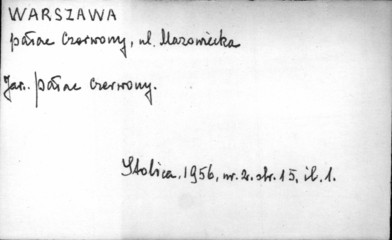 WARSZAWA
pałac Czerwony, ul. Mazowiecka
Jan. pałac Czerwony.
Stolica, 1956, nr. 2. str. 15, il. 1.